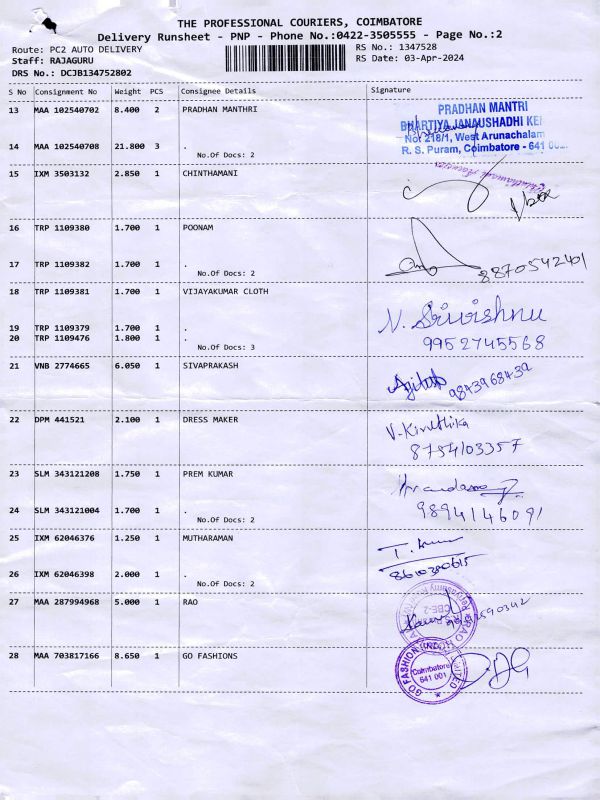 THE PROFESSIONAL COURIERS, COIMBATORE
Delivery Runsheet - PNP - Phone No.:0422-3505555 - Page No.:2
Route: PC2 AUTO DELIVERY
RS No.: 1347528
Staff: RAJAGURU
RS Date: 03-Apr-2024
DRS No.: DCJB134752802
S No Consignment No Weight PCS Consignee Details Signature
13 MAA 102540702 8.400 2 PRADHAN MANTHRI
PRADHAN MANTRI
BHARTIYA JANAUSHADHI KEN
Not 218/1, West Arunachalam
R. S. Puram, Coimbatore - 641
14 MAA 102540708 21.800 3 .
No.Of Docs: 2
15 IXM 3503132 2.850 1 CHINTHAMANI
16 TRP 1109380 1.700 1 POONAM
17 TRP 1109382 1.700 1 .
No.Of Docs: 2
8870542401
18 TRP 1109381 1.700 1 VIJAYAKUMAR CLOTH
N. Srivishnu
19 TRP 1109379 1.700 1 .
20 TRP 1109476 1.800 1 .
No.Of Docs: 3
9952745568
21 VNB 2774665 6.050 1 SIVAPRAKASH
9843968439
22 DPM 441521 2.100 1 DRESS MAKER
V. Kiruthika
8754103357
23 SLM 343121208 1.750 1 PREM KUMAR
24 SLM 343121004 1.700 1 .
No.Of Docs: 2
9894146091
25 IXM 62046376 1.250 1 MUTHARAMAN
26 IXM 62046398 2.000 1 .
No.Of Docs: 2
8610380615
27 MAA 287994968 5.000 1 RAO
CBE-2
28 MAA 703817166 8.650 1 GO FASHIONS
GO FASHION
LIMITED
Coimbatore
641 001